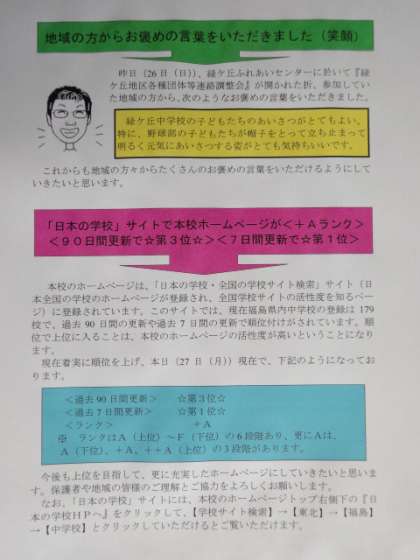 地域の方からお褒めの言葉をいただきました（笑顔）
昨日（26日（日））、緑ケ丘ふれあいセンターに於いて『緑
ケ丘地区各種団体等連絡調整会』が開かれた折、参加してい
た地域の方から、次のようなお褒めの言葉をいただきました。
緑ケ丘中学校の子どもたちのあいさつがとてもよい。
特に、野球部の子どもたちが帽子をとって立ち止まって
明るく元気にあいさつする姿がとても気持ちいいです。
これからも地域の方々からたくさんのお褒めの言葉をいただけるようにして
いきたいと思います。
「日本の学校」サイトで本校ホームページが＜＋Ａランク＞
＜９０日間更新で☆第３位☆＞＜７日間更新で☆第１位＞
本校のホームページは、「日本の学校・全国の学校サイト検索」サイト（日
本全国の学校のホームページが登録され、全国学校サイトの活性度を知るペー
ジ）に登録されています。このサイトでは、現在福島県内中学校の登録は 179
校で、過去 90 日間の更新や過去 7 日間の更新で順位付けがされています。順
位で上位に入ることは、本校のホームページの活性度が高いということになり
ます。
現在着実に順位を上げ、本日（27 日（月））現在で、下記のようになってお
ります。
＜過去 90 日間更新＞　☆第３位☆
＜過去 7 日間更新＞　☆第１位☆
＜ランク＞　＋Ａ
※　ランクはＡ（上位）～Ｆ（下位）の６段階あり、更にＡは、
Ａ（下位）、＋Ａ、＋＋Ａ（上位）の３段階があります。
今後も上位を目指して、更に充実したホームページにしていきたいと思いま
す。保護者や地域の皆様のご理解とご協力をよろしくお願いします。
なお、「日本の学校」サイトには、本校のホームページトップ右側下の『日
本の学校ＨＰへ』をクリックして、【学校サイト検索】→【東北】→【福島】
→【中学校】とクリックしていただけるとご覧いただけます。